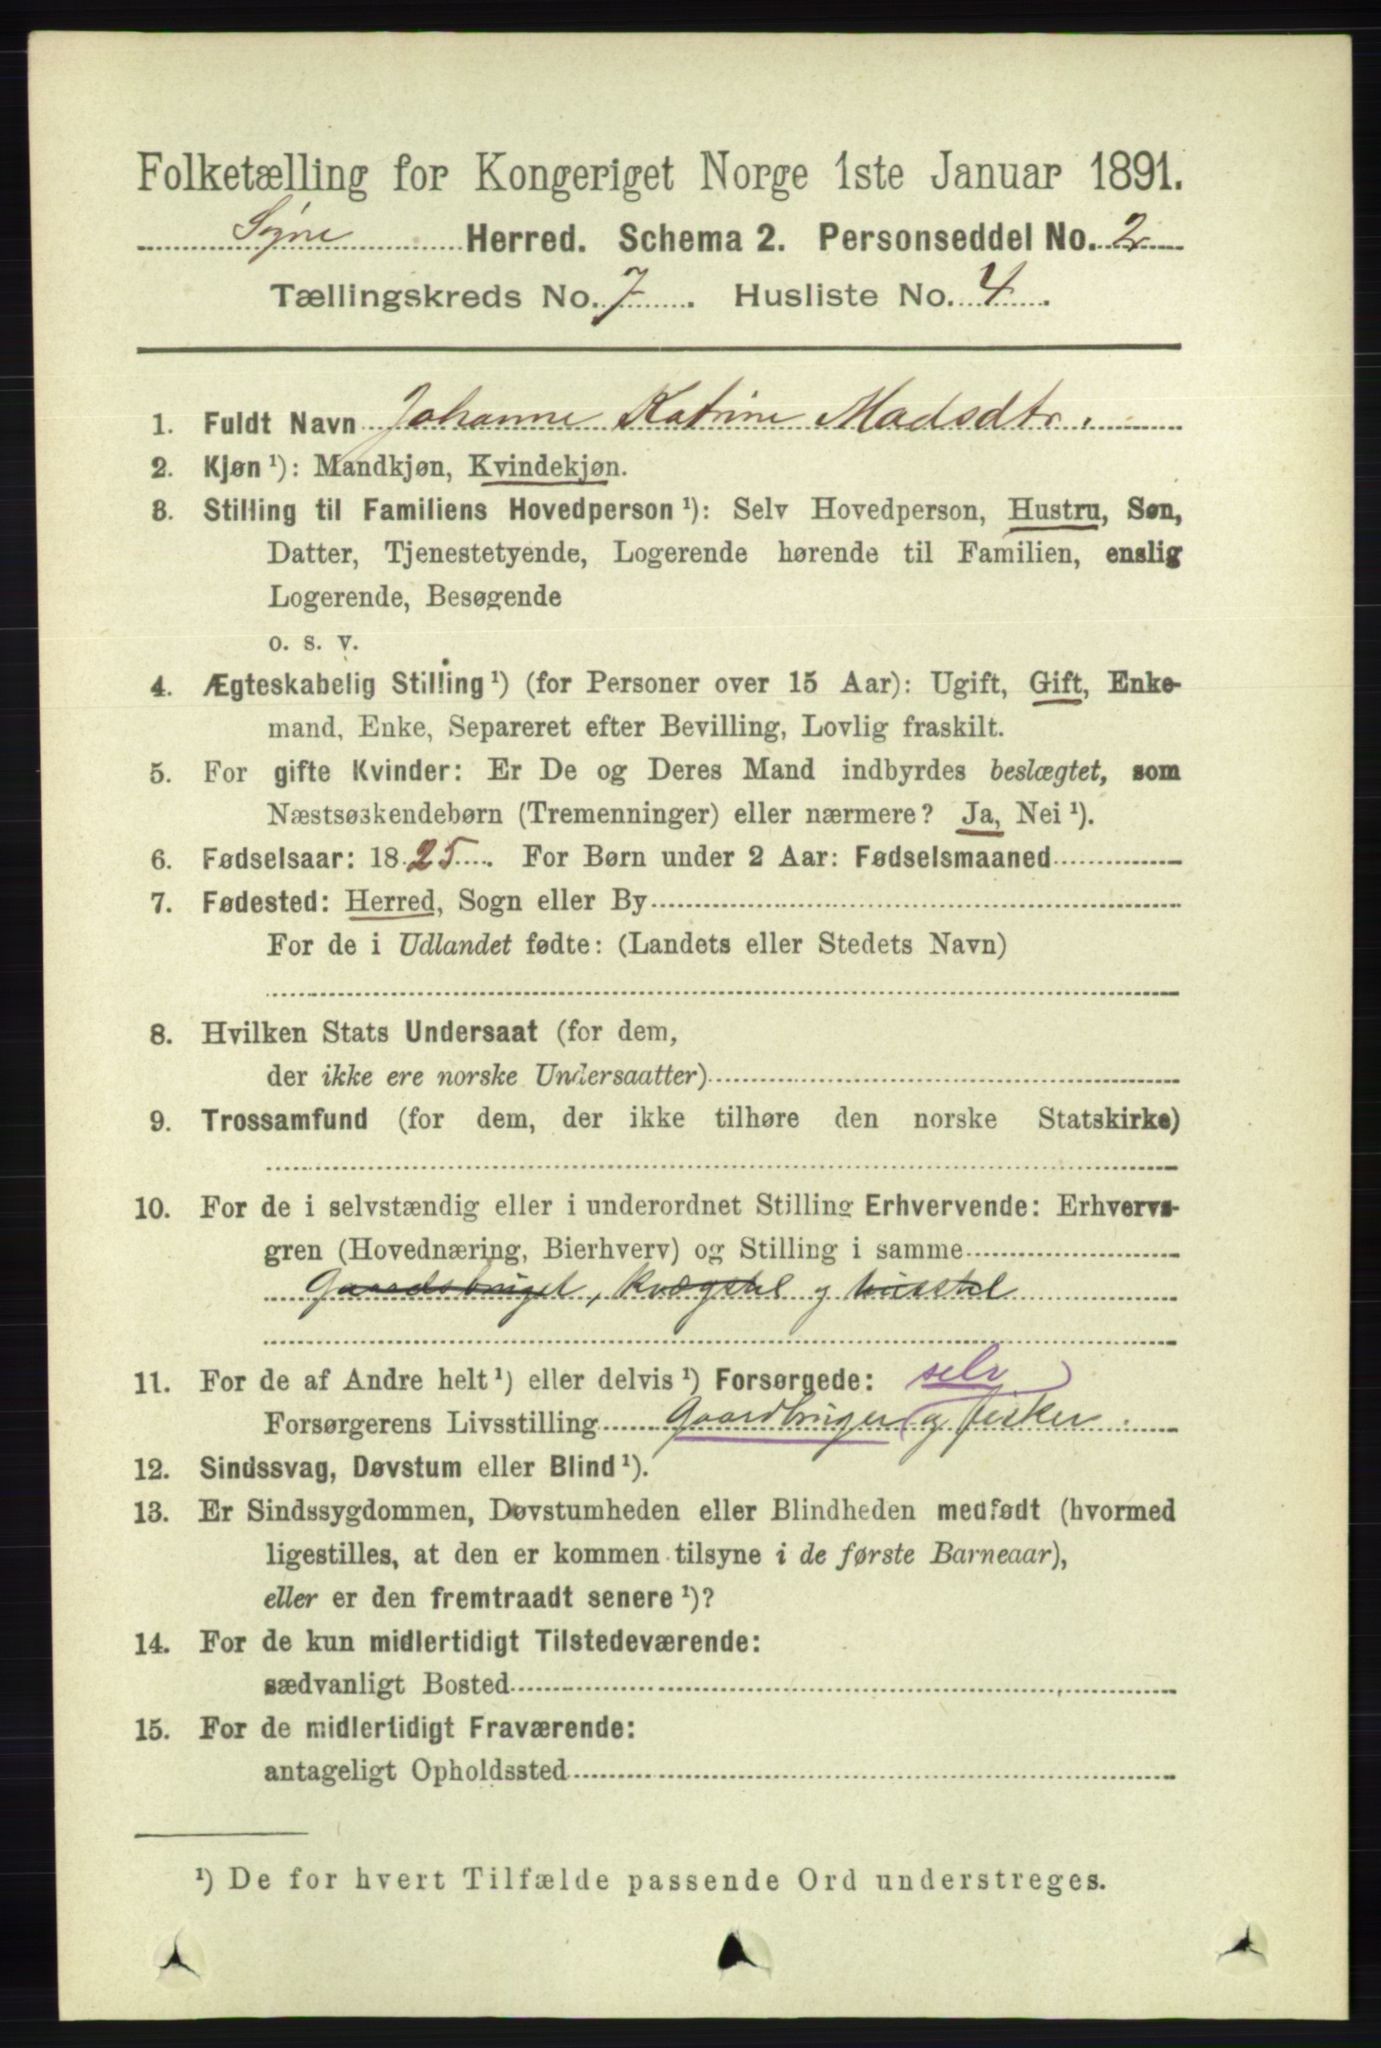 Folketælling for Kongeriget Norge 1ste Januar 1891.
Søgne Herred. Schema 2. Personseddel No. 2
Tællingskreds No. 7. Husliste No. 4.
1. Fuldt Navn Johanne Katrine Madsdtr.
2. Kjøn ¹): Mandkjøn, Kvindekjøn.
3. Stilling til Familiens Hovedperson ¹): Selv Hovedperson, Hustru, Søn,
Datter, Tjenestetyende, Logerende hørende til Familien, enslig
Logerende, Besøgende
o. s. v.
4. Ægteskabelig Stilling ¹) (for Personer over 15 Aar): Ugift, Gift, Enke-
mand, Enke, Separeret efter Bevilling, Lovlig fraskilt.
5. For gifte Kvinder: Er De og Deres Mand indbyrdes beslægtet, som
Næstsøskendebørn (Tremenninger) eller nærmere? Ja, Nei ¹).
6. Fødselsaar: 1825. For Børn under 2 Aar: Fødselsmaaned
7. Fødested: Herred, Sogn eller By
For de i Udlandet fødte: (Landets eller Stedets Navn)
8. Hvilken Stats Undersaat (for dem,
der ikke ere norske Undersaatter)
9. Trossamfund (for dem, der ikke tilhøre den norske Statskirke)
10. For de i selvstændig eller i underordnet Stilling Erhvervende: Erhvervs-
gren (Hovednæring, Bierhverv) og Stilling i samme
Gaardsbruget, kvægstel og husstel
11. For de af Andre helt ¹) eller delvis ¹) Forsørgede: selv
Forsørgerens Livsstilling Gaardbruger og fisker.
12. Sindssvag, Døvstum eller Blind ¹).
13. Er Sindssygdommen, Døvstumheden eller Blindheden medfødt (hvormed
ligestilles, at den er kommen tilsyne i de første Barneaar),
eller er den fremtraadt senere ¹)?
14. For de kun midlertidigt Tilstedeværende:
sædvanligt Bosted
15. For de midlertidigt Fraværende:
antageligt Opholdssted
¹) De for hvert Tilfælde passende Ord understreges.